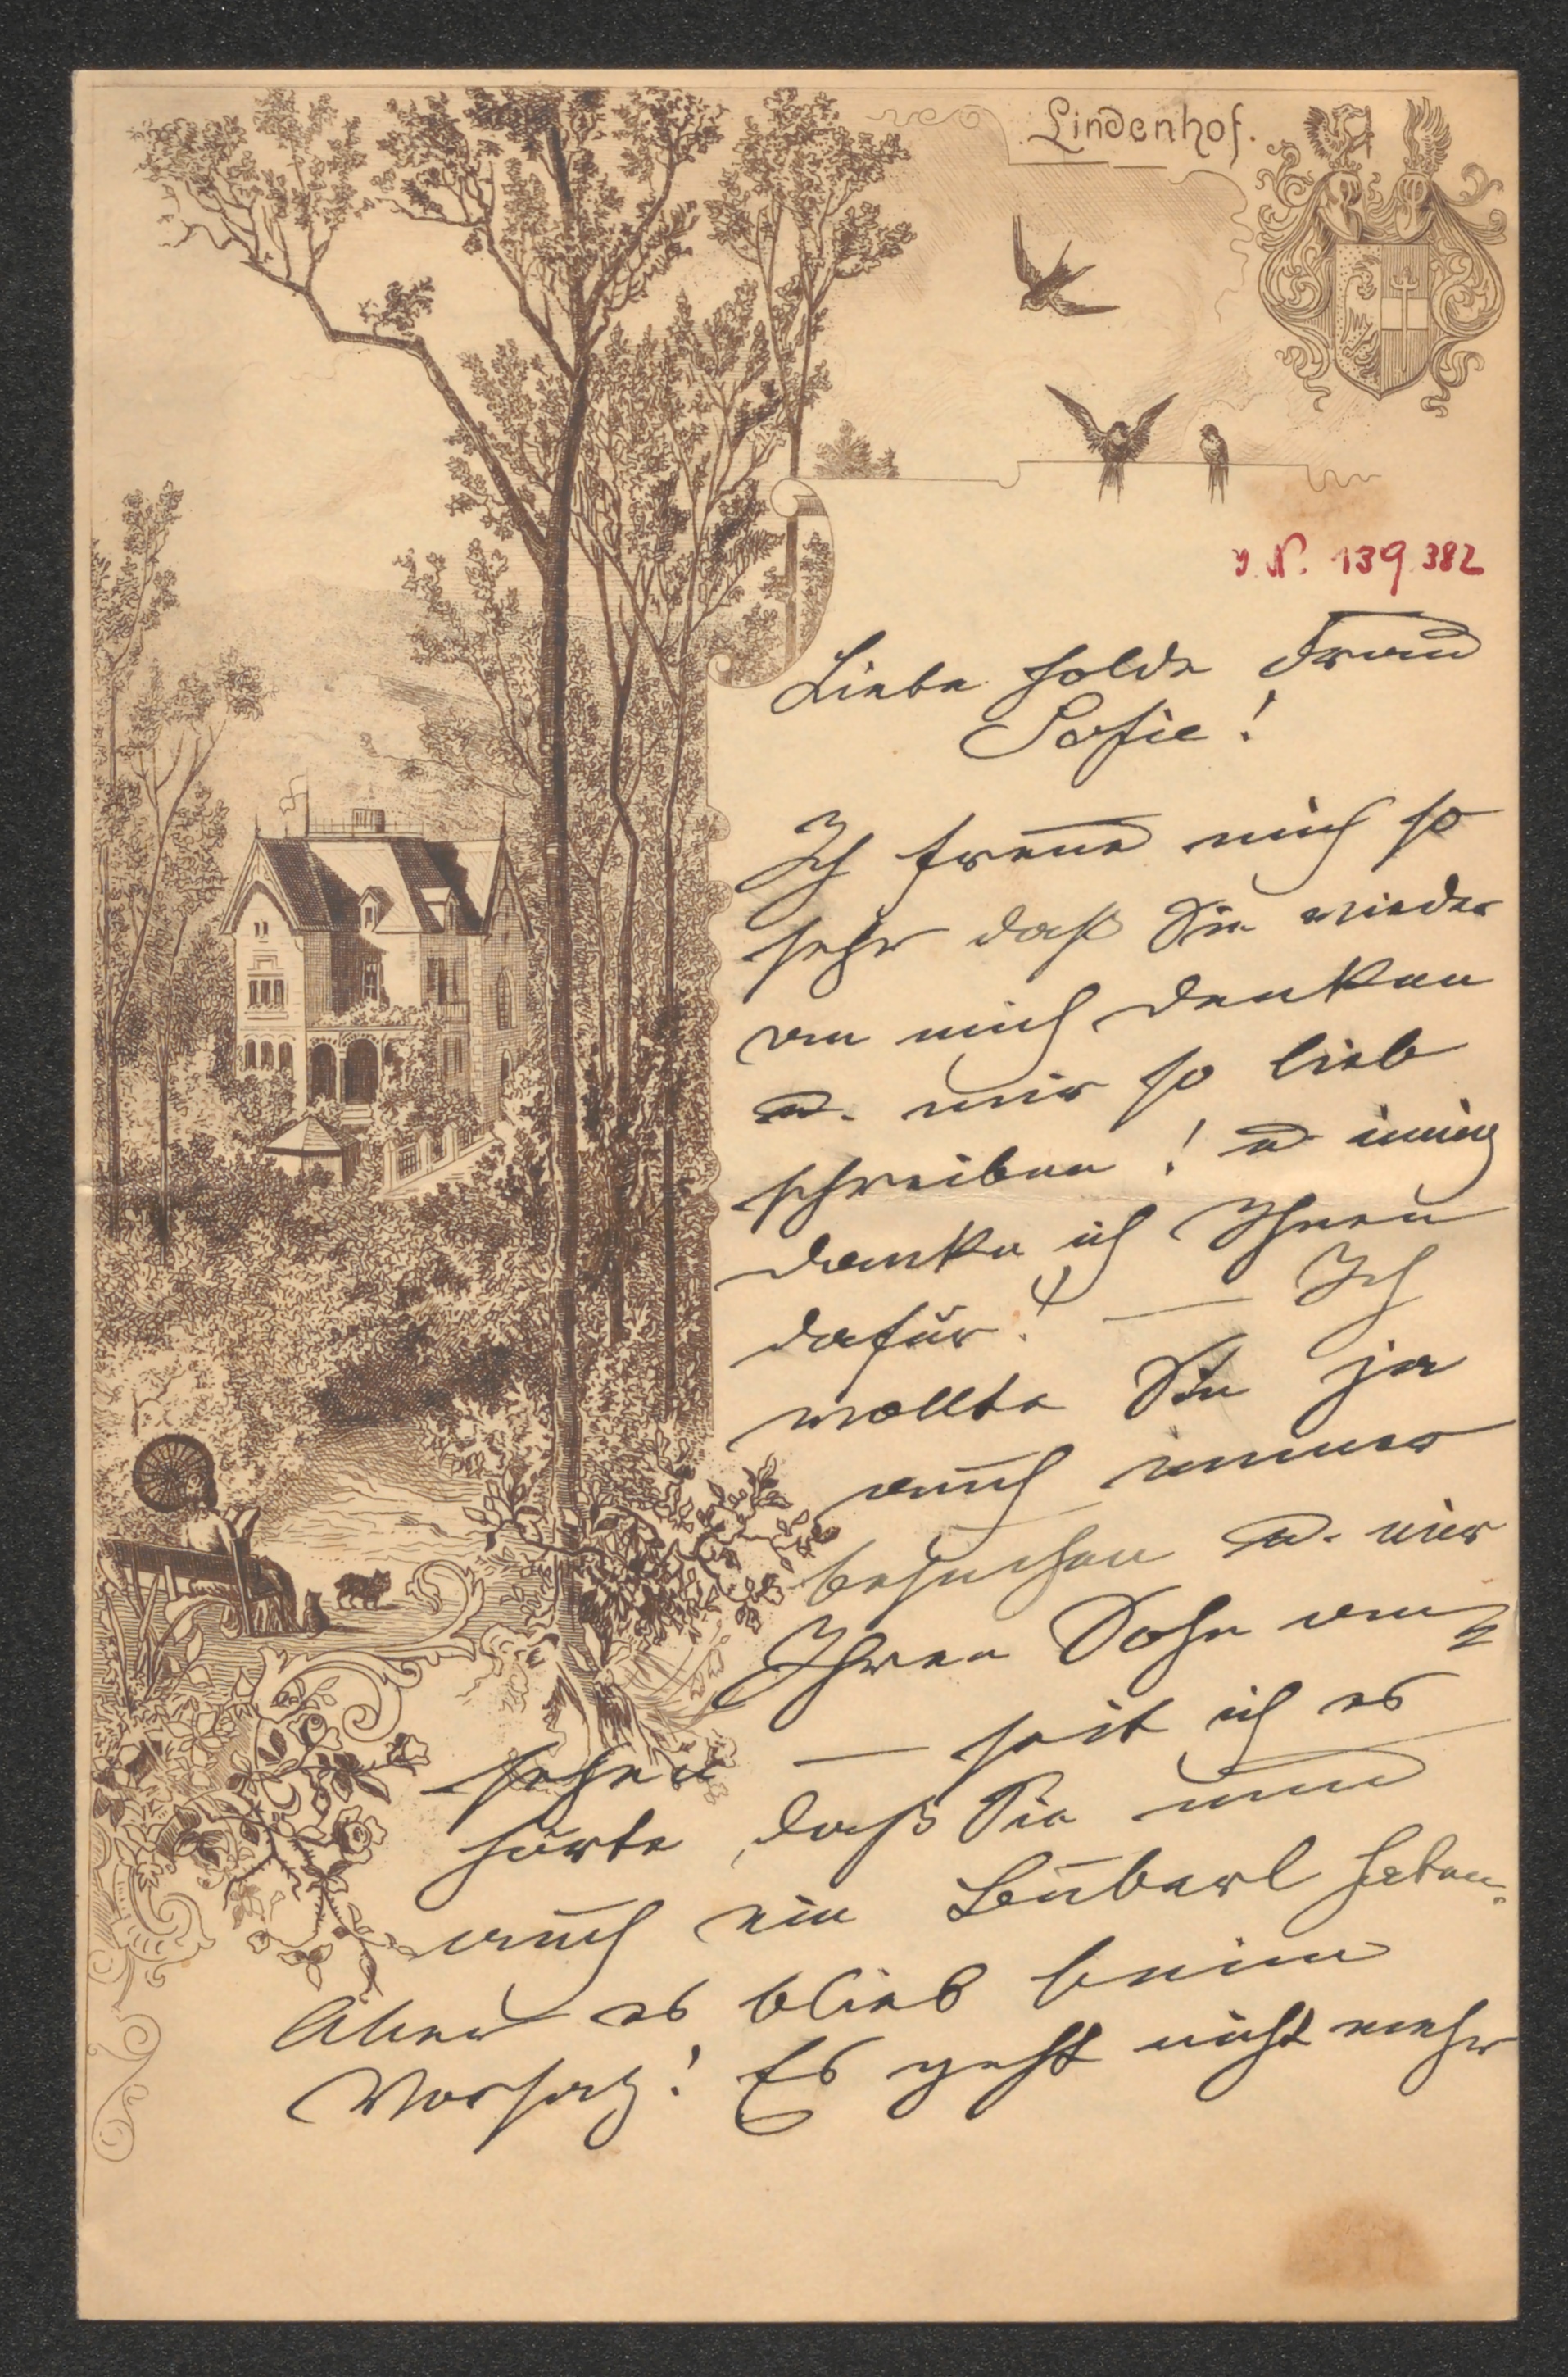 Lindenhof.
J. N. 139.382
Liebe holde Frau
Sofie!
Ich freue mich so
sehr daß Sie wieder
an mich denken
u. mir so lieb
schreiben! u innig
danke ich Ihnen
dafür! — Ich
wollte Sie ja
auch immer
besuchen u. mir
Ihren Sohn an
sehen — seit ich es
hörte, daß Sie nun
auch ein Büberl haben.
Aber es blieb beim
Vorsatz! Es geht nicht mehr